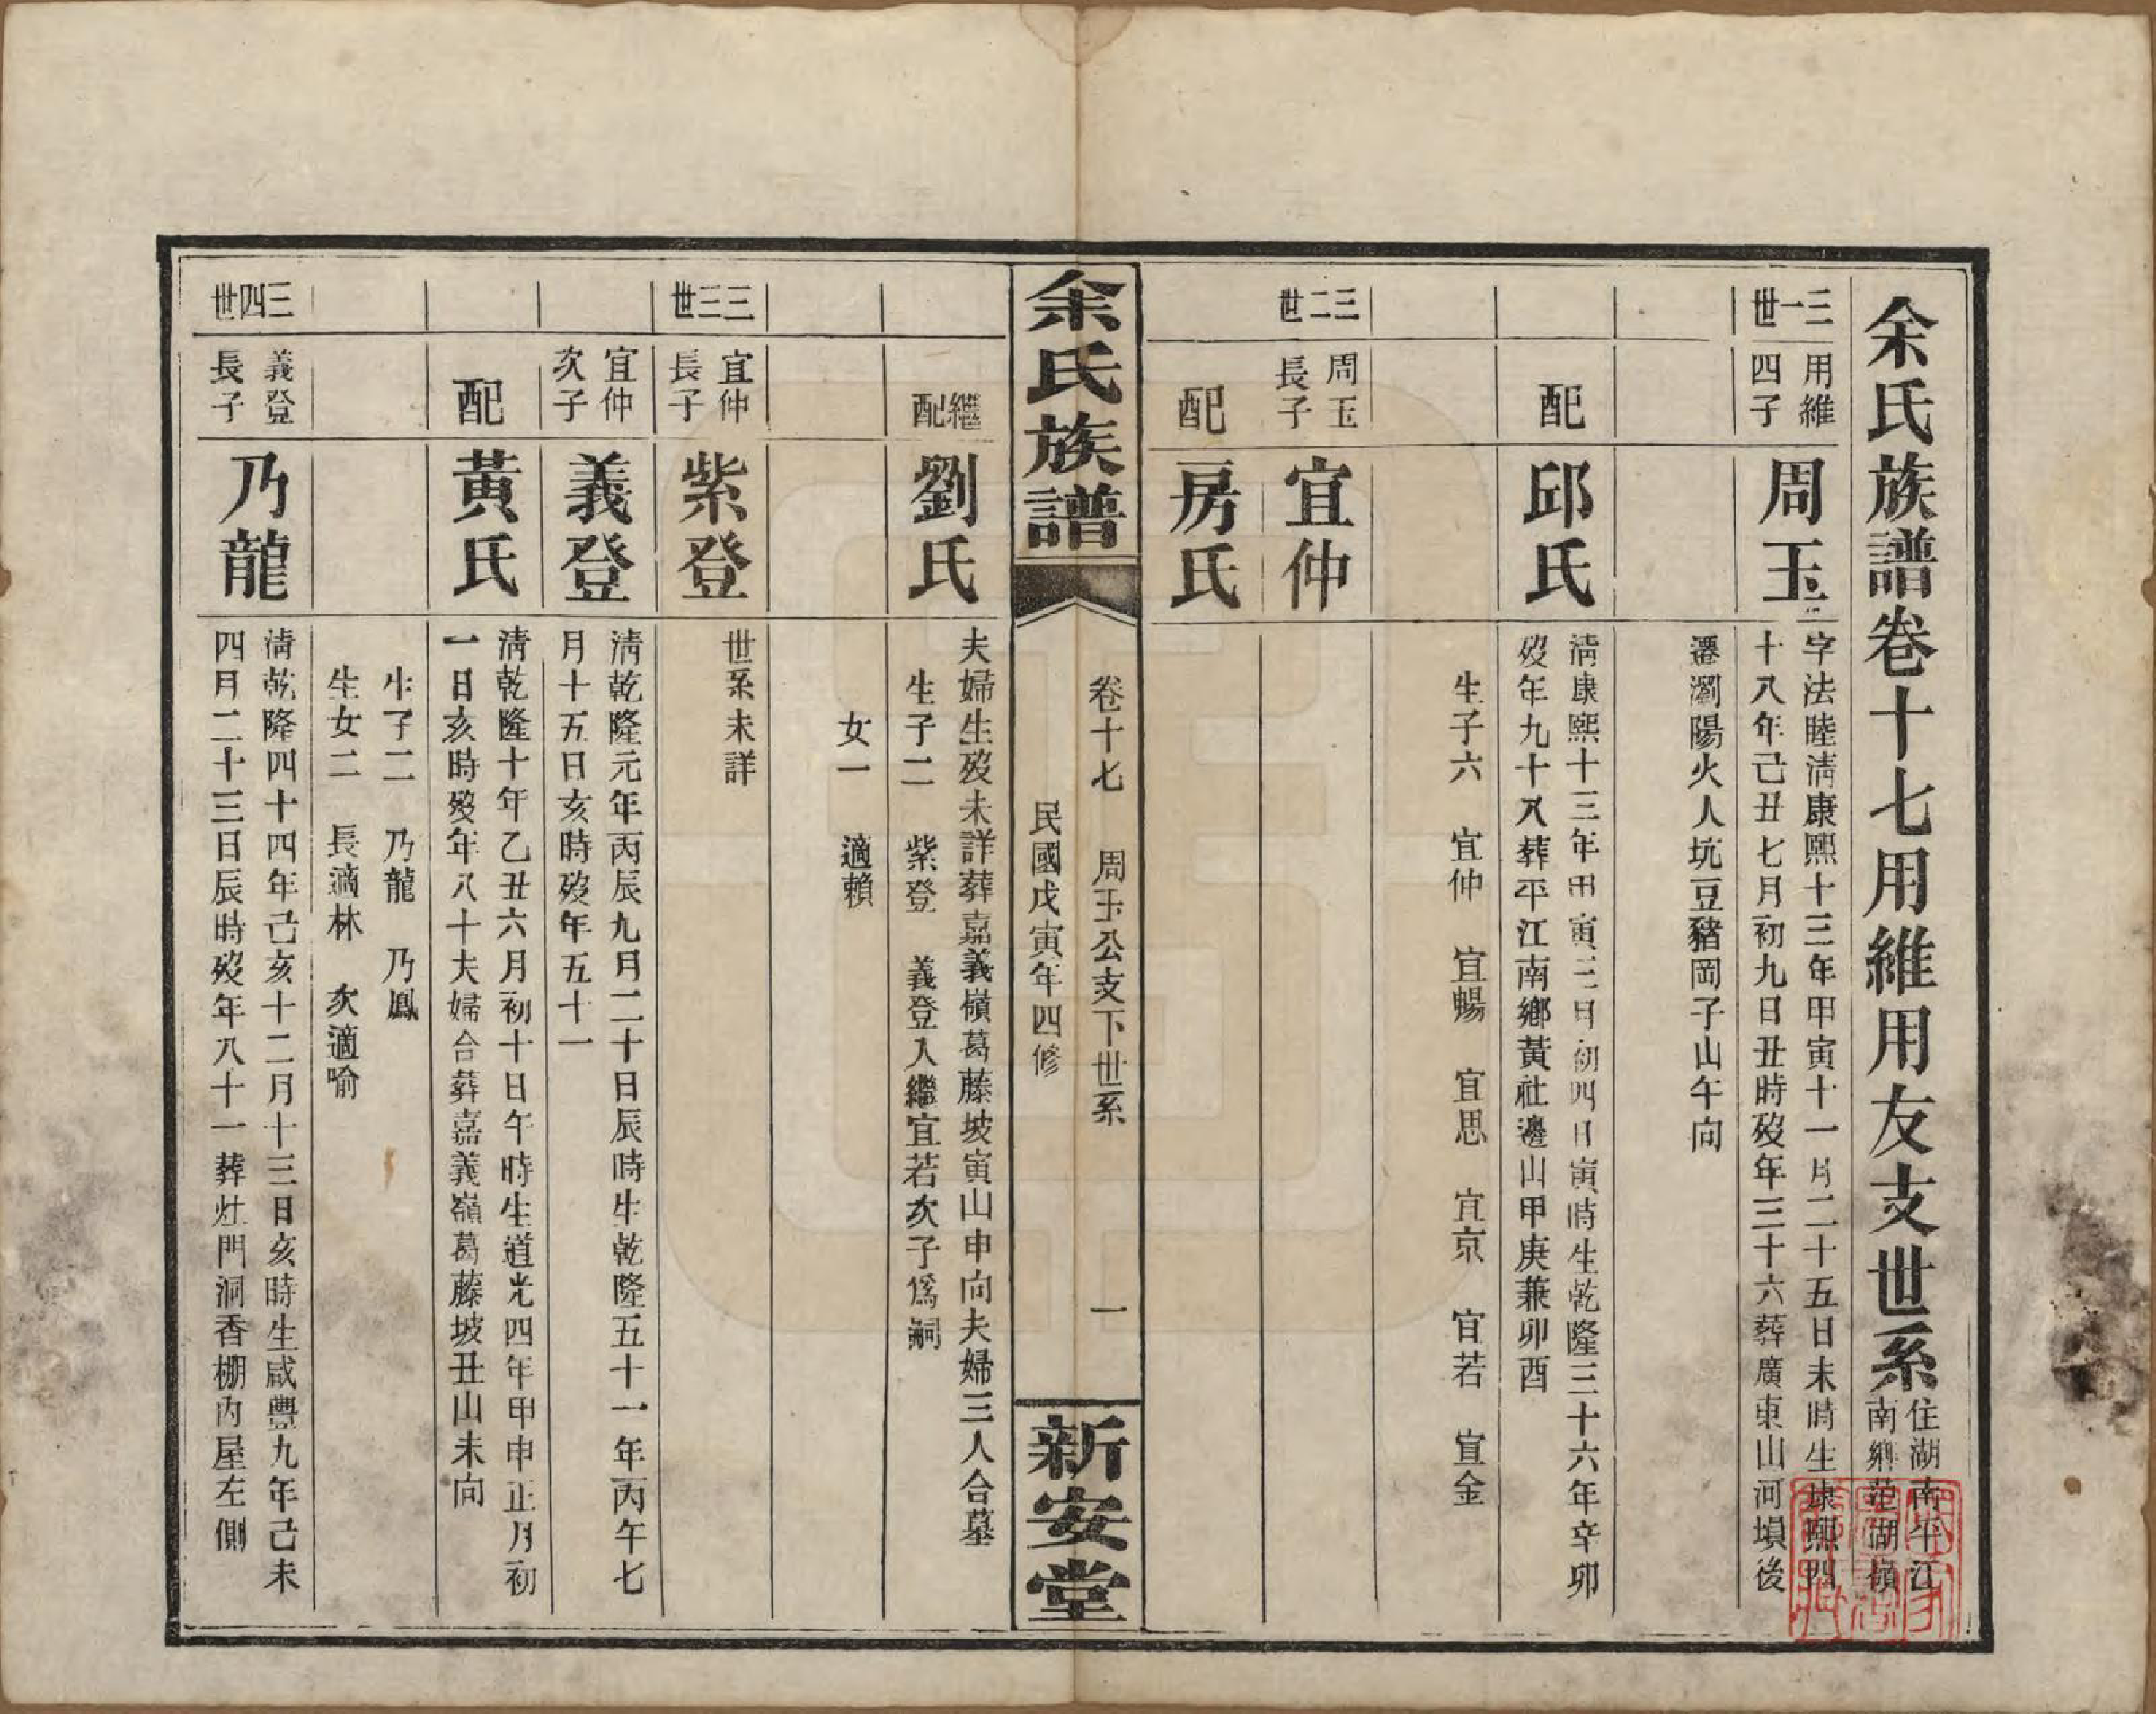 余氏族譜卷十七用維用友支世系
住湖南平江
南鄉范湖嶺
三一世
用維
四子
周玉
字法睦淸康熙十三年甲寅十一月二十五日未時生康熙四
十八年己丑七月初九日丑時歿年三十六葬廣東山河塤後
遷瀏陽火人坑豆豬岡子山午向
配
邱氏
淸康熙十三年甲寅三月初四日寅時生乾隆三十六年辛卯
歿年九十八葬平江南鄉黃社邊山甲庚兼卯酉
生子六 宜仲 宜暢 宜思 宜京 宜若 宜金
三二世
周玉
長子
宜仲
配
房氏
余氏族譜
卷十七 周玉公支下世系 一
民國戊寅年四修
新安堂
繼配
劉氏
夫婦生歿未詳葬嘉義嶺葛藤坡寅山申向夫婦三人合墓
生子二 紫登 義登入繼宜若次子爲嗣
女一 適賴
三三世
宜仲
長子
紫登
世系未詳
宜仲
次子
義登
淸乾隆元年丙辰九月二十日辰時生乾隆五十一年丙午七
月十五日亥時歿年五十一
配
黃氏
淸乾隆十年乙丑六月初十日午時生道光四年甲申正月初
一日亥時歿年八十夫婦合葬嘉義嶺葛藤坡丑山未向
生子二 乃龍 乃鳳
生女二 長適林 次適喻
三四世
義登
長子
乃龍
淸乾隆四十四年己亥十二月十三日亥時生咸豐九年己未
四月二十三日辰時歿年八十一葬灶門洞香棚內屋左側